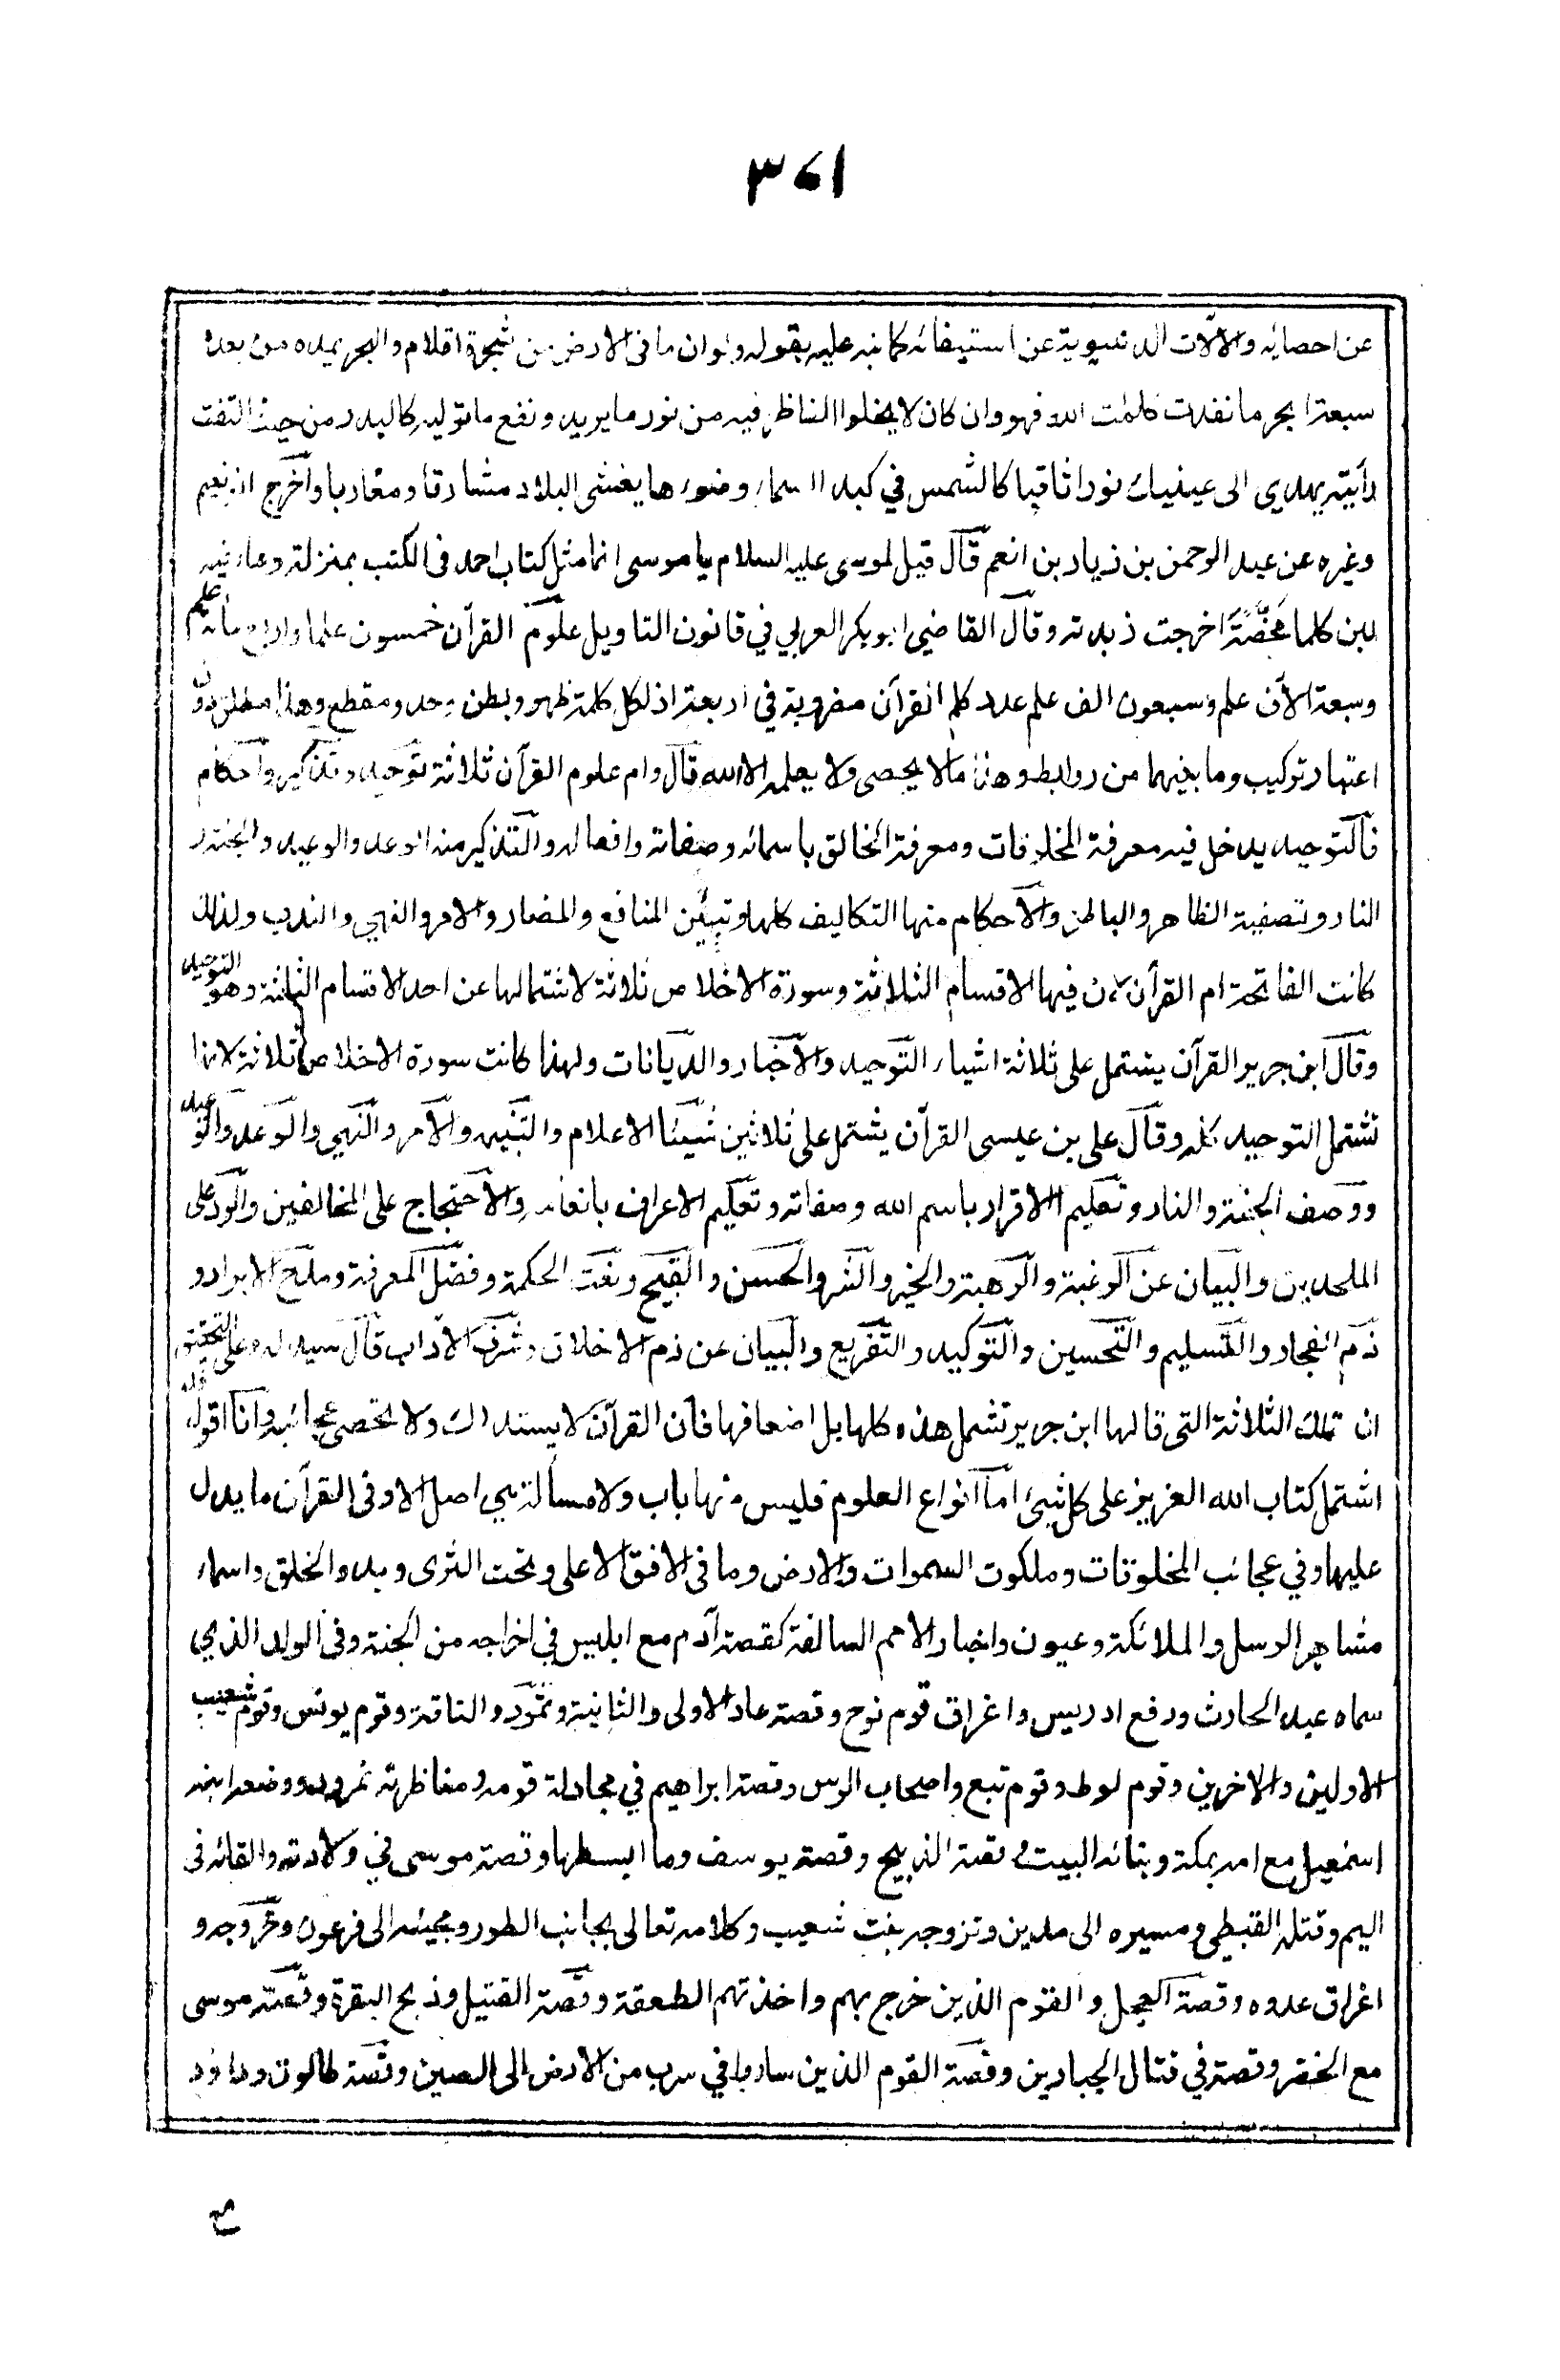 ٣٦١
عن احصائه والآلات الدنيوية عن استيفائه كما نبه عليه بقوله ولو ان ما فى الارض من شجرة اقلام والبحر يمده من بعده
سبعة ابحر ما نفدت كلمت الله فهو وان كان لا يخلوا الناظر فيه من نور ما يريه ونفع ما توليه كالبدر من حيث التفت
رأيته يهدي الى عينيك نورا ثاقبا كالشمس في كبد السماء وضوءها يغشى البلاد مشارقا ومغاربا وآخرج ابو نعيم
وغيره عن عبد الرحمن بن زياد بن انعم قال قيل لموسى عليه السلام يا موسى انما مثل كتاب احمد فى الكتب بمنزلة وعاء فيه
لبن كلما مخضته اخرجت زبدته وقال القاضي ابو بكر العربي في قانون التاويل علوم القرآن خمسون علما واربع مأة علم
وسبعة الآف علم وسبعون الف علم عدد كلم القرآن مضروبة في اربعة اذ لكل كلمة ظهر وبطن وحد ومقطع وهذا مطلق دون
اعتبار تركيب وما بينهما من روابط وهذا مالا يحصى ولا يعلمه الا الله قال وام علوم القرآن ثلاثة توحيد وتذكير واحكام
فالتوحيد يدخل فيه معرفة المخلوقات ومعرفة الخالق باسمائه وصفاته وافعاله والتذكير منه الوعد والوعيد والجنة و
النار وتصفية الظاهر والباطن والآحكام منها التكاليف كلها وتبيين المنافع والمضار والامر والنهي والندب ولذلك
كانت الفاتحة ام القرآن لان فيها الاقسام الثلاثة وسورة الاخلاص ثلاثة لاشتمالها عن احد الاقسام الثلثة وهو التوحيد
وقال ابن جرير القرآن يشتمل على ثلاثة اشياء التوحيد والآخبار والديانات ولهذا كانت سورة الاخلاص ثلاثة لانها
تشتمل التوحيد كله وقال على بن عيسى القرآن يشتمل على ثلاثين شيئا الاعلام والتنبيه والامر والنهي والوعد والوعيد
ووصف الجنة والنار وتعليم الاقرار باسم الله وصفاته وتعليم الاعراف بانعامه والاحتجاج على المخالفين والرد على
الملحدين والبيان عن الرغبة والرهبة والخير والشر والحسن والقبيح ونعت الحكمة وفضل المعرفة ومدح الابرار و
ذم الفجار والتسليم والتحسين والتوكيد والتقريع والبيان عن ذم الاخلاق وشرف الآداب قال سيدله وعلى التحقيق
ان تلك الثلاثة التى قالها ابن جرير تشمل هذه كلها بل اضعافها فان القرآن لا يستدرك ولا تحصى عجائبه وانا اقول قد
اشتمل كتاب الله العزيز على كل شيئ اما انواع العلوم فليس منها باب ولا مسألة هي اصل الا وفى القرآن ما يدل
عليها وفي عجائب المخلوقات وملكوت السموات والارض وما فى الافق الاعلى وتحت الثرى وبدو الخلق واسماء
مشاهير الرسل والملائكة وعيون واخبار الامم السالفة كقصة آدم مع ابليس في اخراجه من الجنة وفى الولد الذي
سماه عبد الحارث ورفع ادريس واغراق قوم نوح وقصة عاد الاولى والثانية وثمود والناقة وقوم يونس وقوم شعيب
الاولين والاخرين وقوم لوط وقوم تبع واصحاب الرس وقصة ابراهيم في مجادلة قومه ومناظرته نمرود ووضعه ابنه
اسمعيل مع امه بمكة وبنائه البيت وقصة الذبيح وقصة يوسف وما ابسطها وقصة موسى في ولادته والقائه فى
اليم وقتله القبطي ومسيره الى مدين وتزوجه بنت شعيب وكلامه تعالى بجانب الطور ومجيئه الى فرعون وخروجه و
اغراق عدوه وقصة العجل والقوم الذين خرج بهم واخذتهم الصعقة وقصة القتيل وذبح البقرة وقصته موسى
مع الخضر وقصته في قتال الجبارين وقصة القوم الذين ساروا في سرب من الارض الى الصين وقصة طالوت وداود
مع